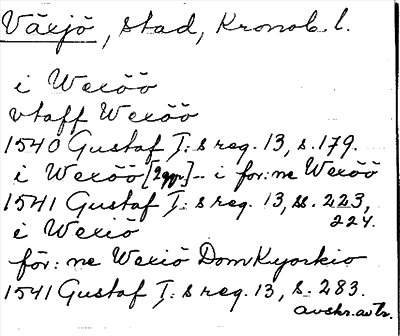 Växjö, stad, Kronob. l.
i Wexöö
vtaff Wexöö
1540 Gustaf I:s reg. 13, s. 179.
i Wexöö [2 ggr] - i för:ne Wexöö
1541 Gustaf I:s reg. 13, ss. 223,
224.
i Wexiö
för:ne Wexiö Domkyrkio
1541 Gustaf I:s reg. 13, s. 283.
avskr. av tr.